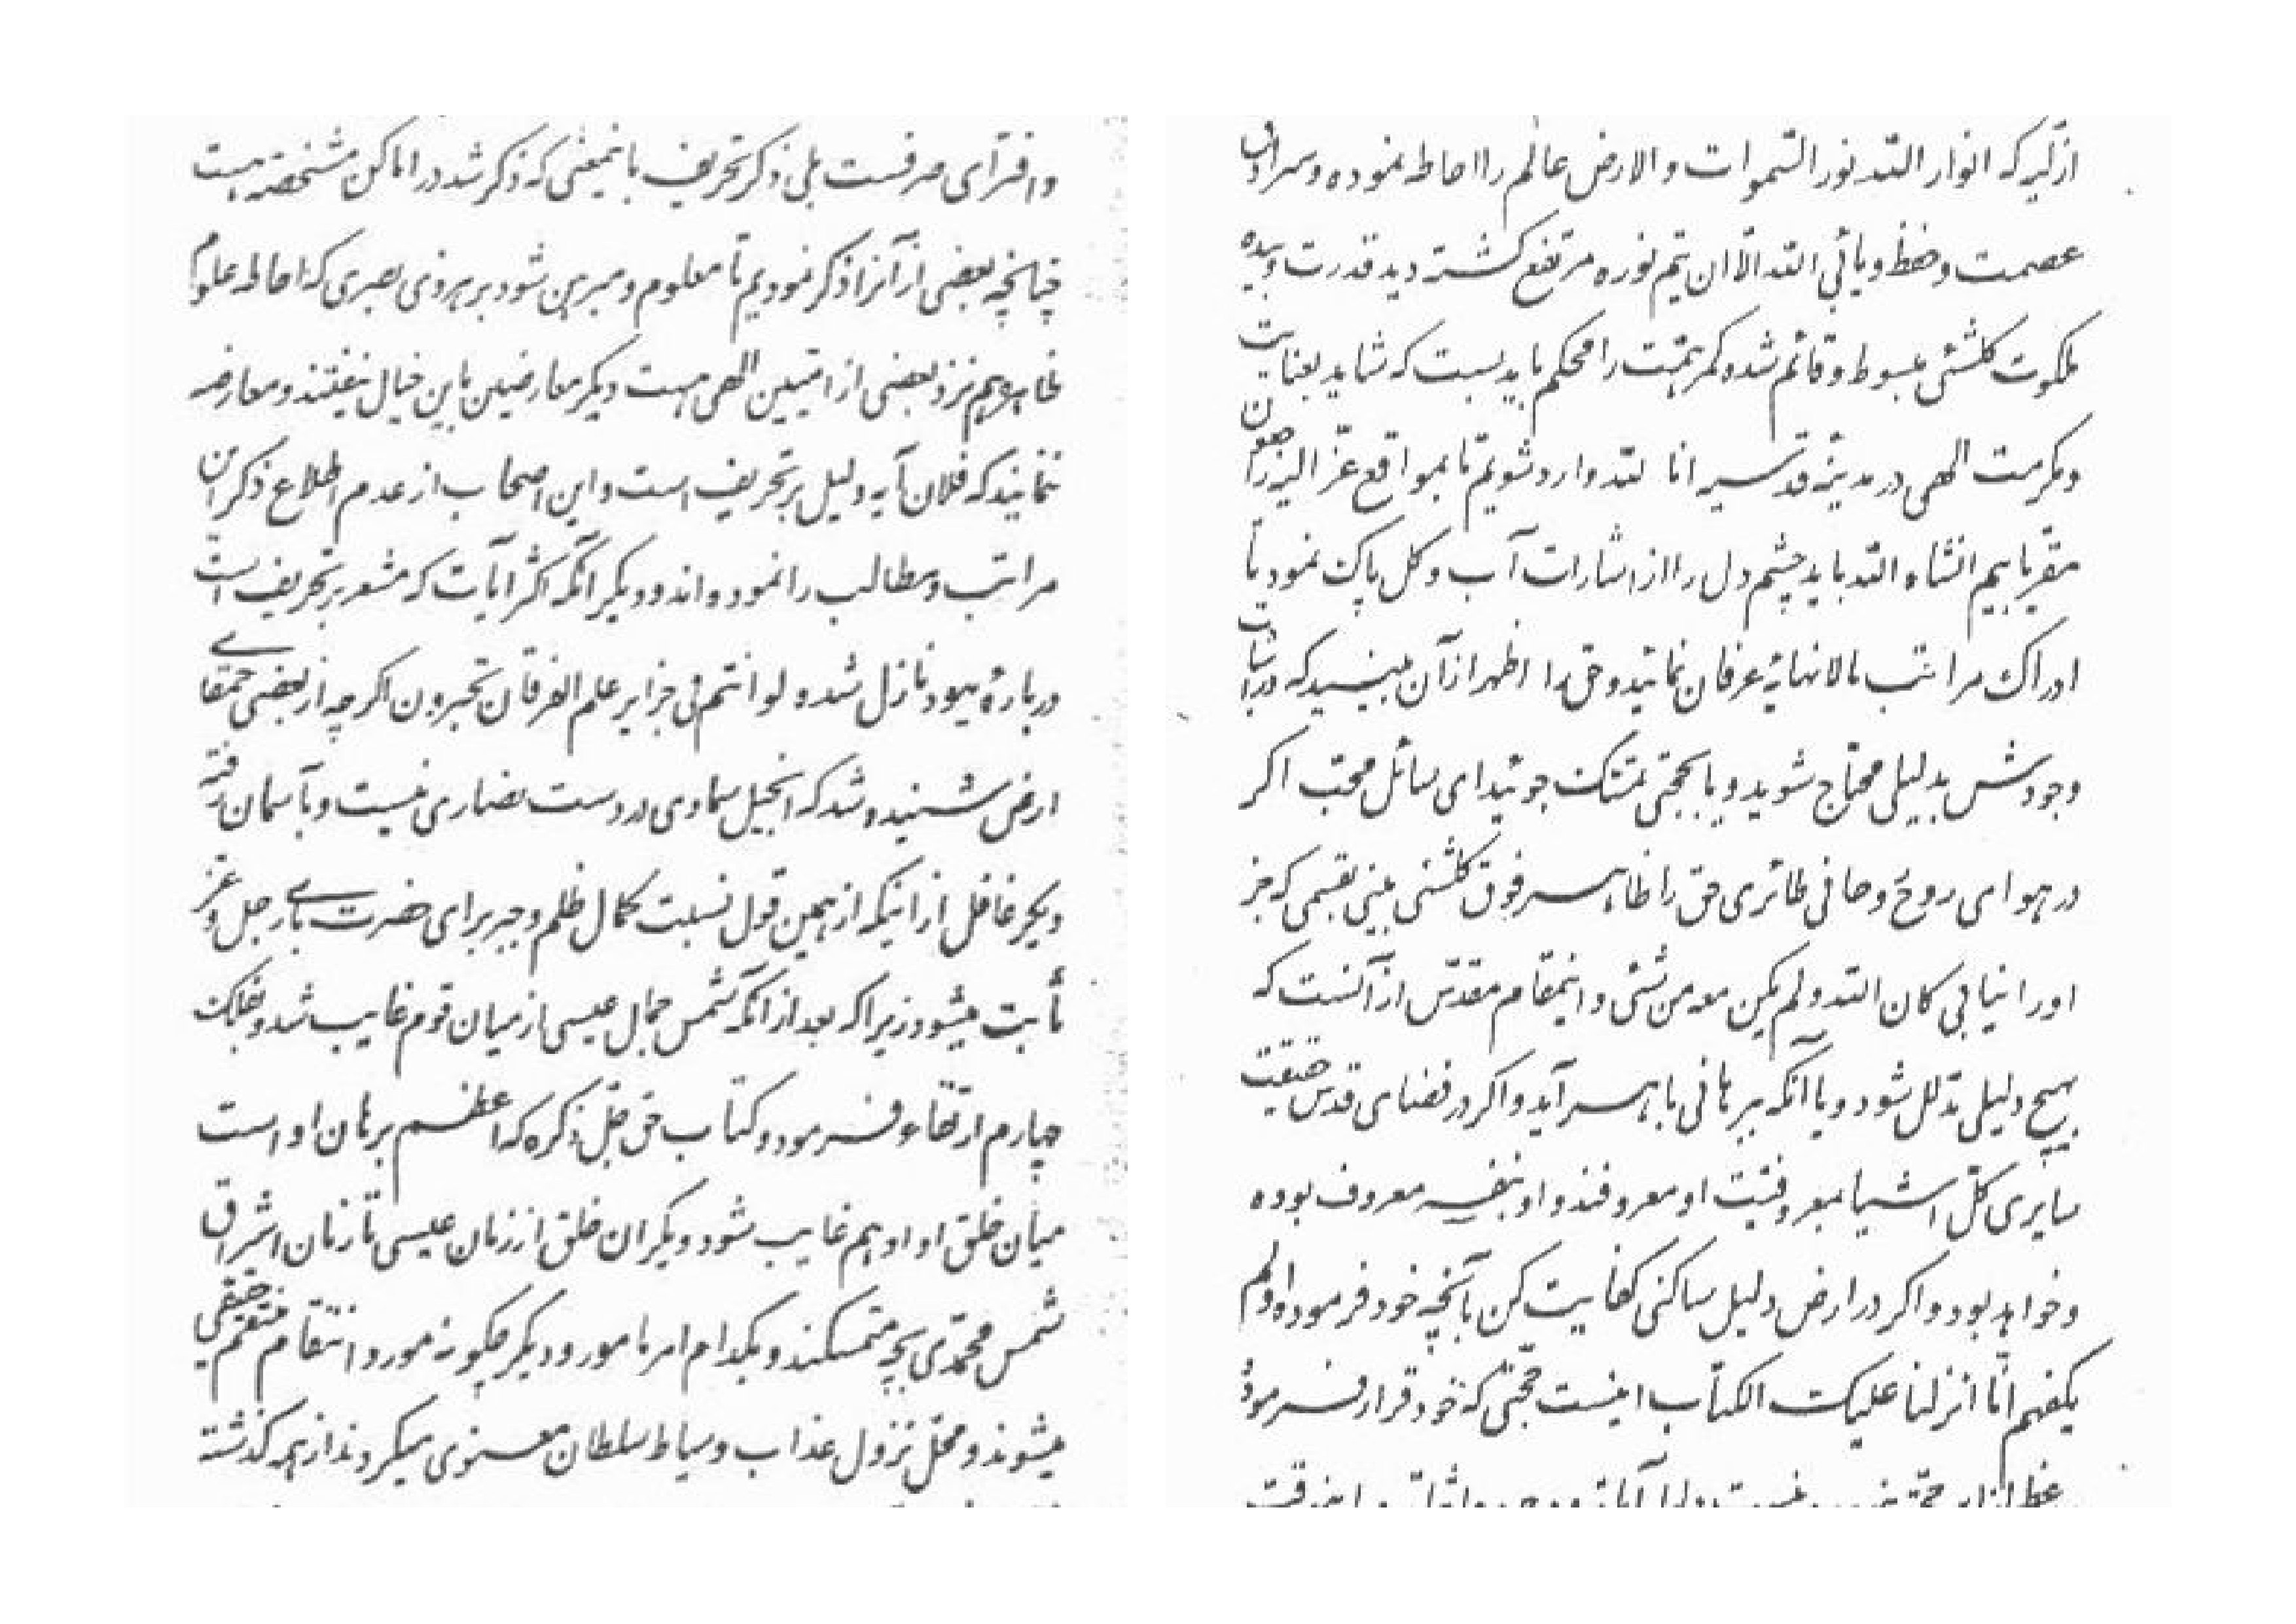 از لیر که انوار الله نور السّموات والارض عالم را احاطه نموده و سرادق
عصمت و حفظ ویأبی الله الّا ان یتم نوره مرتفع گشته و ید قدرت وبیده
ملکوت کلشئی مبسوط و قائم شده کمر همّت را محکم باید بست که شاید بعنایت
و مکرمت الهی در مدینهٔ قدسیه انا لله وارد شویم تا بمواقع عزّ الیه راجعون
مقرّ یابیم انشاء الله باید چشم دل را از اشارات آب و کل پاک نمود تا
ادراک مراتب مالانهایهٔ عرفان نمائید و حق را اظهر از آن بینید که در اثبات
وجودش بدلیلی محتاج شوید و یا بحجّتی تمسّک جوئید ای سائل محبّ اکر
در هوای روح روحانی طائری حق را ظاهر فوق کلشئی بینی بقسمی که جز
اورا نیابی کان الله و لم یکن معه من شئی و اینمقام مقدّس از آنست که
بهیچ دلیلی مدّلل شود و یا آنکه ببرهانی باهر آید و اکر در فضای قدس حقیقت
سایری کلّ اشیا بمعروفیّت او معروفند و او بنفسه معروف بوده
و خواهد بود و اکر در ارض دلیل ساکنی کفایت کن بآنچه خود فرموده اولم
یکفهم انّا انزلنا علیک الکتاب اینست حجّتی که خود قرار فرموده
وافترای صرفست بلی ذکر تحریف باینمعنی که ذکر شد در اماکن مشخصّه هست
چنانچه بعضی از آنرا ذکر نمودیم تا معلوم و مبرهن شود بر هر ذی بصری که احاطه علوم
ظاهره هم نزد بعضی از امّیین الهی هست دیکر معارضین باین خیال نیفتند و معارضه
ننمایند که فلان آیه دلیل بر تحریف است و این اصحاب از عدم اطّلاع ذکر این
مراتب و مطالب را نموده اند و دیکر آنکه اکثر آیات که مشعر بر تحریف است
دربارهٔ یهود نازل شده لو انتم فی جزایر علم الفرقان تحبرون اکر چه از بعضی حمقای
ارض شنیده شد که انجیل سماوی در دست نصاری نیست و بآسمان رفته
دیکر غافل از اینکه از همین قول نسبت کمال ظلم و جبر برای حضرت باری جل و عز
ثابت میشود زیرا که بعد از آنکه شمس جمال عیسی از میان قوم غایب شد و بفلک
چهارم ارتقاء فرمود و کتاب حق جلّ ذکره که اعظم برهان او است
میان خلق او او هم غایب شود دیکر ان خلق از زمان عیسی تا زمان اشراق
شمس محمّدی بچه متمسکند و بکدام امر مامور و دیکر چکونه مورد انتقام منتقم حقیقی
میشوند و محلّ نزول عذاب و سیاط سلطان معنوی میکردند از همه کذشته